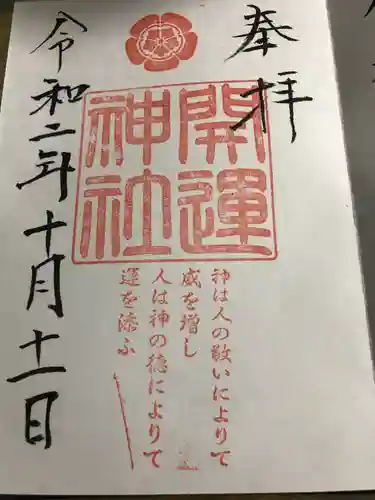 奉拝
開運
神社
神は人の敬いによりて
威を増し
人は神の徳によりて
運を添ふ
令和二年十月十一日